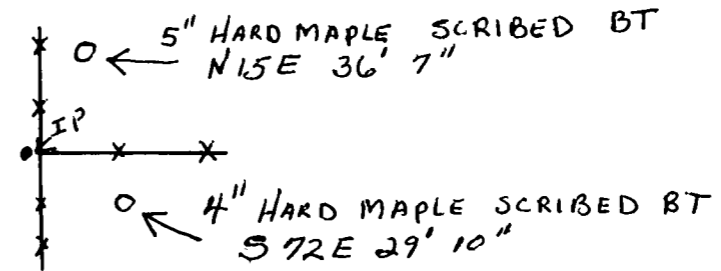 5" HARD MAPLE SCRIBED BT
N 15 E 36' 7"
IP
4" HARD MAPLE SCRIBED BT
S 72 E 29' 10"